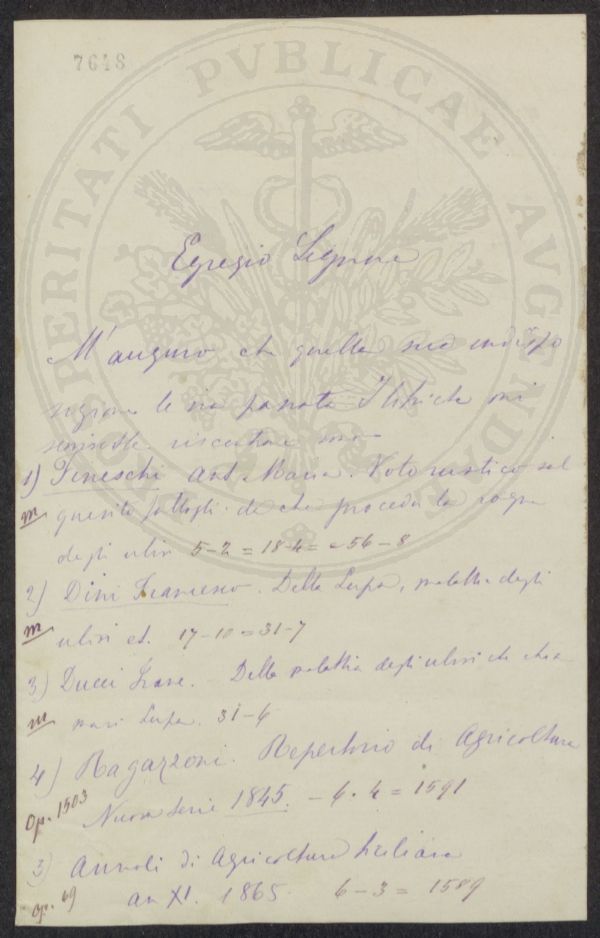 7648
PROSPERITATI PVBLICAE AVGENDAE
Egregio Signore
M'auguro che quella sua indispo
sizione le sia passata mi
1) Feneschi Ant. Maria. Voto rustico sul
m quesito fattogli. da che proceda la rogna
degli ulivi 5-2 = 18-4 = 56-8
2) Dini Francesco. Della Lupa, malattia degli
m ulivi et. 17-10 = 31-7
3) Ducci Frane. - Della malattia degli ulivi che chia
m masi Lupa. 31-6
4) Ragazzoni. Repertorio di Agricoltura
Op. 1503 Nuova Serie 1845. - 4. 4 = 1591
3) Annali di Agricoltura Siciliana
Op. 69 an XI. 1865. 6-3 = 1589